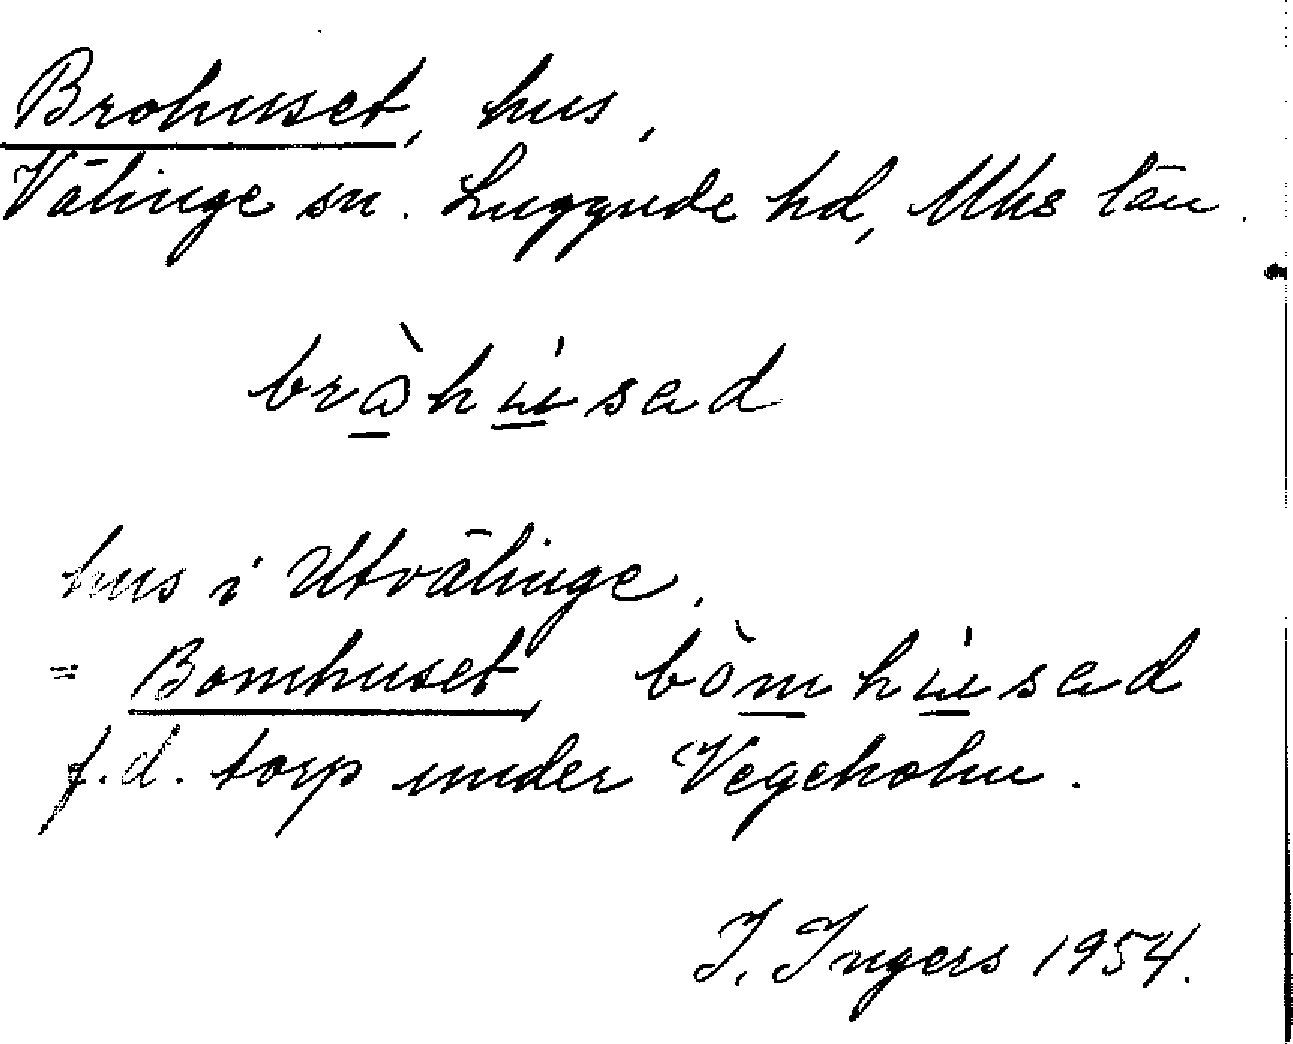 Brohuset, hus,
Välinge sn. Luggude hd, Mhs län.
bràhu̇sad
hus i Utvälinge.
= Bomhuset, bòmhu̇sad
f.d. torp under Vegeholm.
I. Ingers 1954.